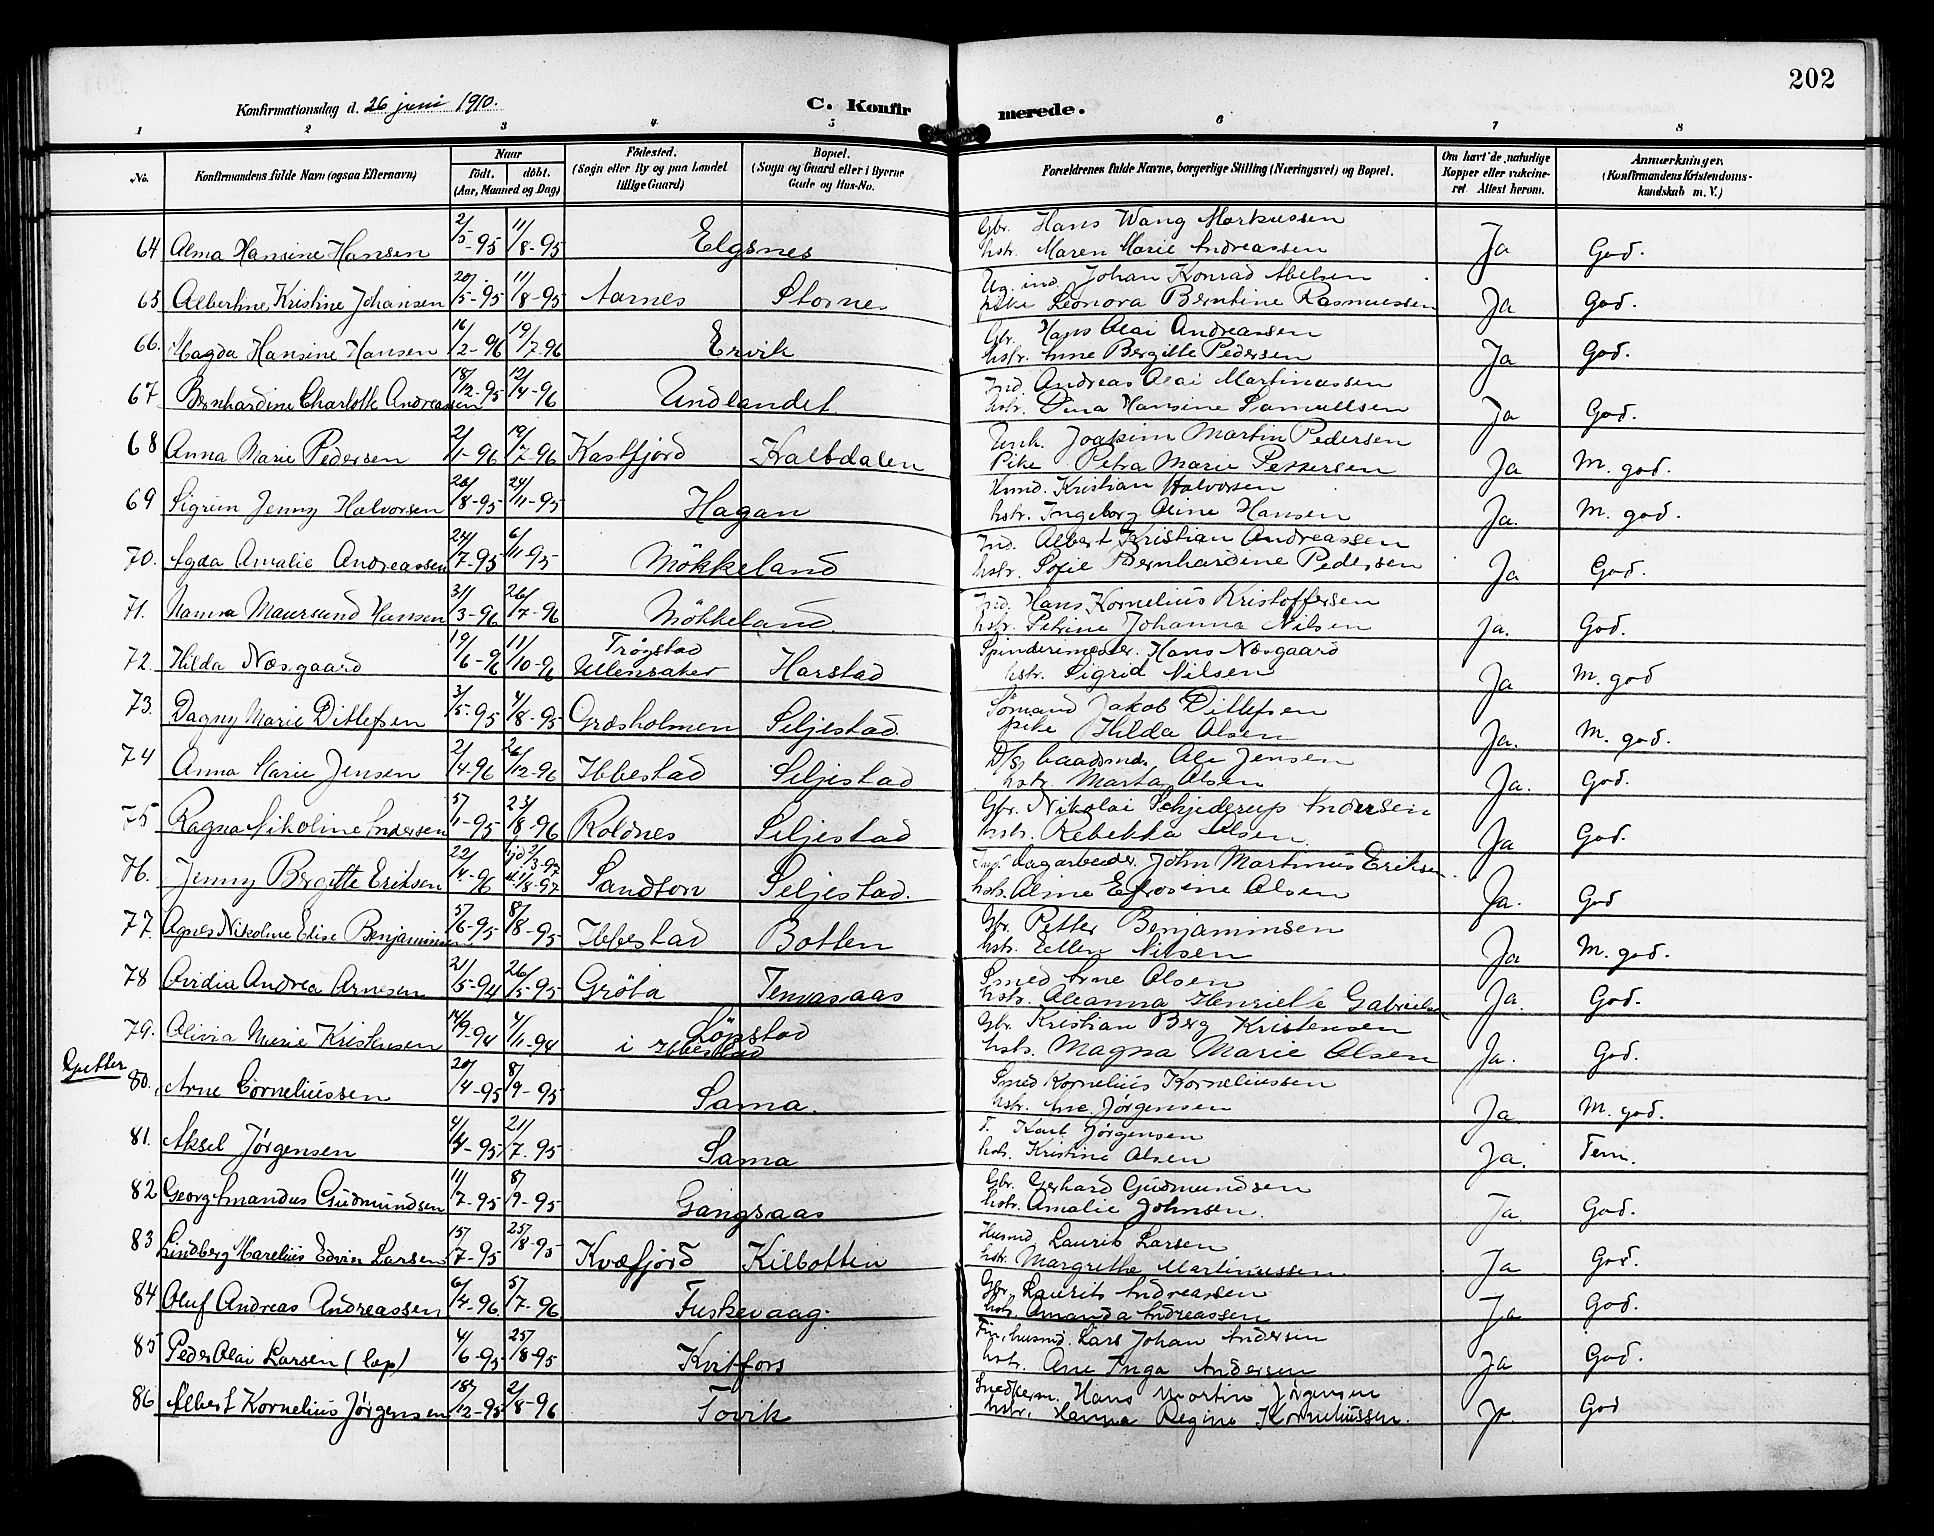 202
Konfirmationsdag d. 26 juni 1910.
C. Konfirmerede.
1 2 3 4 5 6 7 8
No. Konfirmandens fulde Navn (ogsaa Efternavn) Naar født. døbt. (Aar, Maaned og Dag) Fødested. (Sogn eller By og paa Landet tillige Gaard) Bopæl. (Sogn og Gaard eller i Byerne Gade og Hus-No. Forældrenes fulde Navne, borgerlige Stilling (Næringsvei) og Bopæl. Om havt de naturlige Kopper eller vaccineret. Attest herom. Anmærkninger. (Konfirmandens Kristendomskundskab m. V.)
64 Alma Hansine Hansen 2/5-95 11/8-95 Elgsnes Gbr. Hans Wang Markussen
hstr. Maren Marie Andreassen Ja God.
65 Albertine Kristine Johansen 20/5-95 11/8-95 Aarnes Stornes Ug. ind. Johan Konrad Abelsen
pike Leonora Berntine Rasmussen Ja God.
66. Magda Hansine Hansen 16/2-96 19/7-96 Ervik Gbr. Hans Olai Andreassen
hstr. Anne Bergitte Pedersen Ja God.
67 Bernhardine Charlotte Andreassen 18/12-95 12/4-96 Undlandet Ind. Andreas Olai Martinussen
hstr. Dina Hansine Samuelsen Ja God.
68 Anna Marie Pedersen 2/1-96 19/7-96 Kastfjord Kalbdalen Unk. Joakim Martin Pedersen
Pike Petra Marie Pettersen Ja M. god.
69 Sigrun Jenny Halvorsen 26/8-95 24/11-95 Hagan Husmd. Kristian Halvorsen
hstr. Ingeborg Oline Hansen Ja. M. god.
70. Agda Amalie Andreassen 24/7-95 6/11-95 Møkkeland Ind. Albert Kristian Andreassen
hstr. Sofie Bernhardine Pedersen Ja God.
71. Nanna Maursund Hansen 31/3-96 26/7-96 Møkkeland. Ind. Hans Kornelius Kristoffersen
hstr. Petrine Johanna Nilsen Ja. God.
72. Hilda Næsgaard 19/6-96 11/10-96 Trøgstad Ullensaker Harstad Spinderimester. Hans Næsgaard
hstr. Sigrid Nilsen Ja M. god
73. Dagny Marie Ditlefsen 3/5-95 4/8-95 Græsholmen Seljestad. Sømand Jakob Ditlefsen
pike Hilda Olsen Ja. M. god.
74 Anna Marie Jensen 2/4-96 26/12-96 Ibbestad Seljestad Ole Jensen
hstr. Marta Olsen Ja. God.
75 Ragna Nikoline Andersen 5/1-95 23/8-96 Roldnes Seljestad Gbr. Nikolai Schjederup Andersen
hstr. Rebekka Olsen. Ja God.
76. Jenny Bergitte Eriksen 22/4-96 hjd 2/3-97 1/8-97 Sandtorv Seljestad. dagarbeider. John Martinus Eriksen
hstr. Aline Efrosine Olsen Ja. God
77. Agnes Nikoline Elise Benjaminsen 5/6-95 8/8-95 Ibbestad Botten Gbr. Petter Benjaminsen
hstr. Ellen Nilsen Ja M. god.
78 Ovidia Andrea Arnesen 21/5-94 26/5-95 Grøta Tennaaas Smed Arne Olsen
hstr. Oleanna Henriette Gabrielsen Ja. God.
79. Olivia Marie Kristensen 14/9-94 4/11-94 Løgstad i Ibbestad Gbr. Kristian Berg Kristensen
hstr. Magna Marie Olsen Ja. God.
Gutter
80. Arne Cornelius­sen 20/4-95 8/9-95 Sama. Smed Kornelius Korneliussen
hstr. Ane Jørgensen Ja. M. god.
81. Aksel Jørgensen 4/4-95 21/7-95 Sama F. Karl Jørgensen
hstr. Kristine Olsen Ja. Tem.
82 Georg Amandus Gudmundsen 11/7-95 8/9-95 Gangsaas Gbr. Gerhard Gudmundsen
hstr. Amalie Johnsen. Ja. God.
83 Lindberg Marelius Edvin Larsen 15/7-95 25/8-95 Kvæfjord Kilbotten Husmd Laurits Larsen
hstr. Margrethe Martinussen Ja God.
84 Oluf Andreas Andreassen 6/4-96 5/7-96 Fuskevaag. Gbr. Laurits Andreassen
hstr. Amanda Andreassen Ja God.
85 Peder Olai Larsen (lap) 4/6-95 25/8-95 Kvitfors Fin, husmd. Lars Johan Andersen
hstr. Ane Inga Andersen Ja God.
86 Albert Kornelius Jørgensen 18/12-95 2/8-96 Tovik Snedkerm. Hans Martin Jørgensen
hstr. Hanna Regine Korneliussen. Ja. God